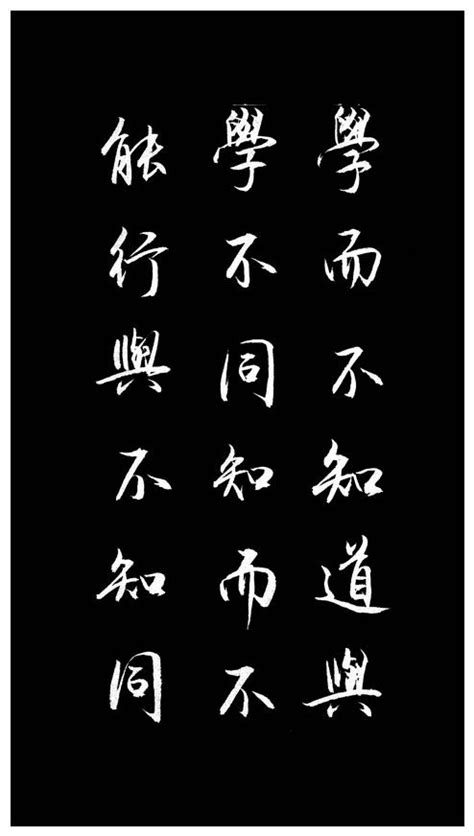 學而不知道與
學不同知而不
能行與不知同